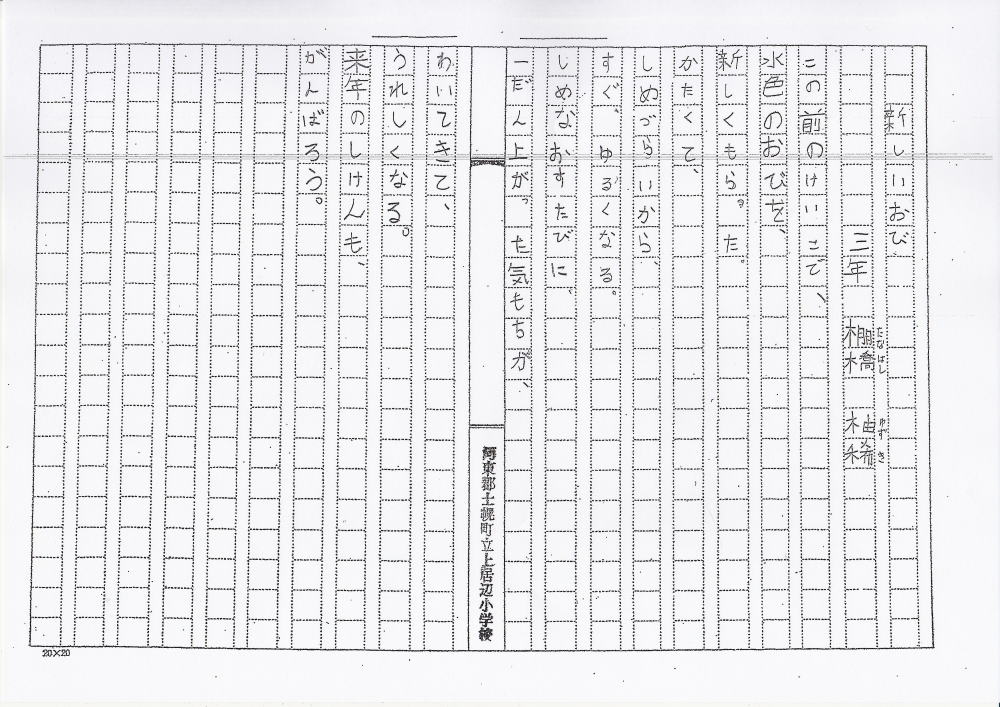 新しいおび
三年 棚橋 柚稀
たなはし ゆずき
この前のけいこで、
水色のおびを、
新しくもらった。
かたくて、
しめづらいから、
すぐ、ゆるくなる。
しめなおすたびに、
一だん上がった気もちが、
わいてきて、
うれしくなる。
来年のしけんも、
がんばろう。
河東郡士幌町立上居辺小学校
20×20